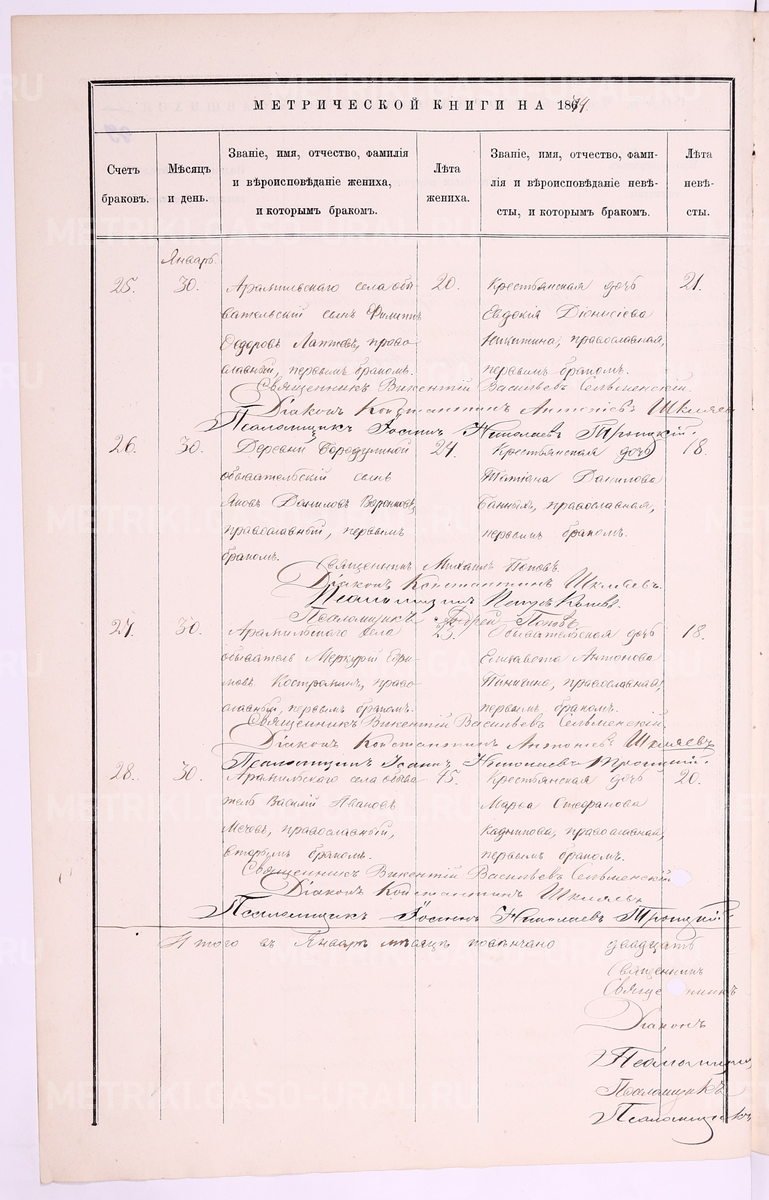 МЕТРИЧЕСКОЙ КНИГИ НА 1879
Счетъ браковъ.
Мѣсяцъ и день.
Званіе, имя, отчество, фамилія
и вѣроисповѣданіе жениха,
и которымъ бракомъ.
Лѣта жениха.
Званіе, имя, отчество, фами-
лія и вѣроисповѣданіе невѣ-
сты, и которымъ бракомъ.
Лѣта невѣ-
сты.
Январь
25. 30. Арамильскаго села обы 20. Крестьянская дочь 21.
вательскій сынъ Филиппъ Евдокія Діонисіева
Ѳедоровъ Лаптевъ, право Никитина, православная,
славный, первымъ бракомъ. первымъ бракомъ.
Священникъ Викентій Васильевъ Сельменскій.
Діаконъ Константинъ Антоніевъ Шкляевъ
Псаломщикъ Іоаннъ Николаевъ Троицкій.
26. 30. Деревни Бородулиной 24. Крестьянская дочь 18.
обывательскій сынъ Татіана Данилова
Яковъ Даниловъ Воронковъ, православная,
православный, первымъ первымъ бракомъ.
бракомъ.
Священникъ Михаилъ Поповъ.
Діаконъ Константинъ Шкляевъ.
Псаломщикъ
Псаломщикъ Андрей Поповъ
27. 30. Арамильскаго села Обывательская дочь 18.
обыватель Меркурій Елизавета Антонова
Костромин, право православная,
славный, первымъ бракомъ. первымъ бракомъ.
Священникъ Викентій Васильевъ Сельменскій
Діаконъ Константинъ Антоніевъ Шкляевъ
Псаломщикъ Іоаннъ Николаевъ Троицкій.
28. 30. Арамильскаго села обыва 45. Крестьянская дочь 20.
тель Василій Ивановъ Марѳа Стефанова
Мечевъ, православный, Кадникова, православная,
вторымъ бракомъ. первымъ бракомъ.
Священникъ Викентій Васильевъ Сельменскій
Діаконъ Константинъ Шкляевъ
Псаломщикъ Іоаннъ Николаевъ Троицкій.
Итого въ Январѣ мѣсяцѣ повѣнчано двадцать
Священникъ
Священникъ
Діаконъ
Псаломщикъ
Псаломщикъ
Псаломщикъ